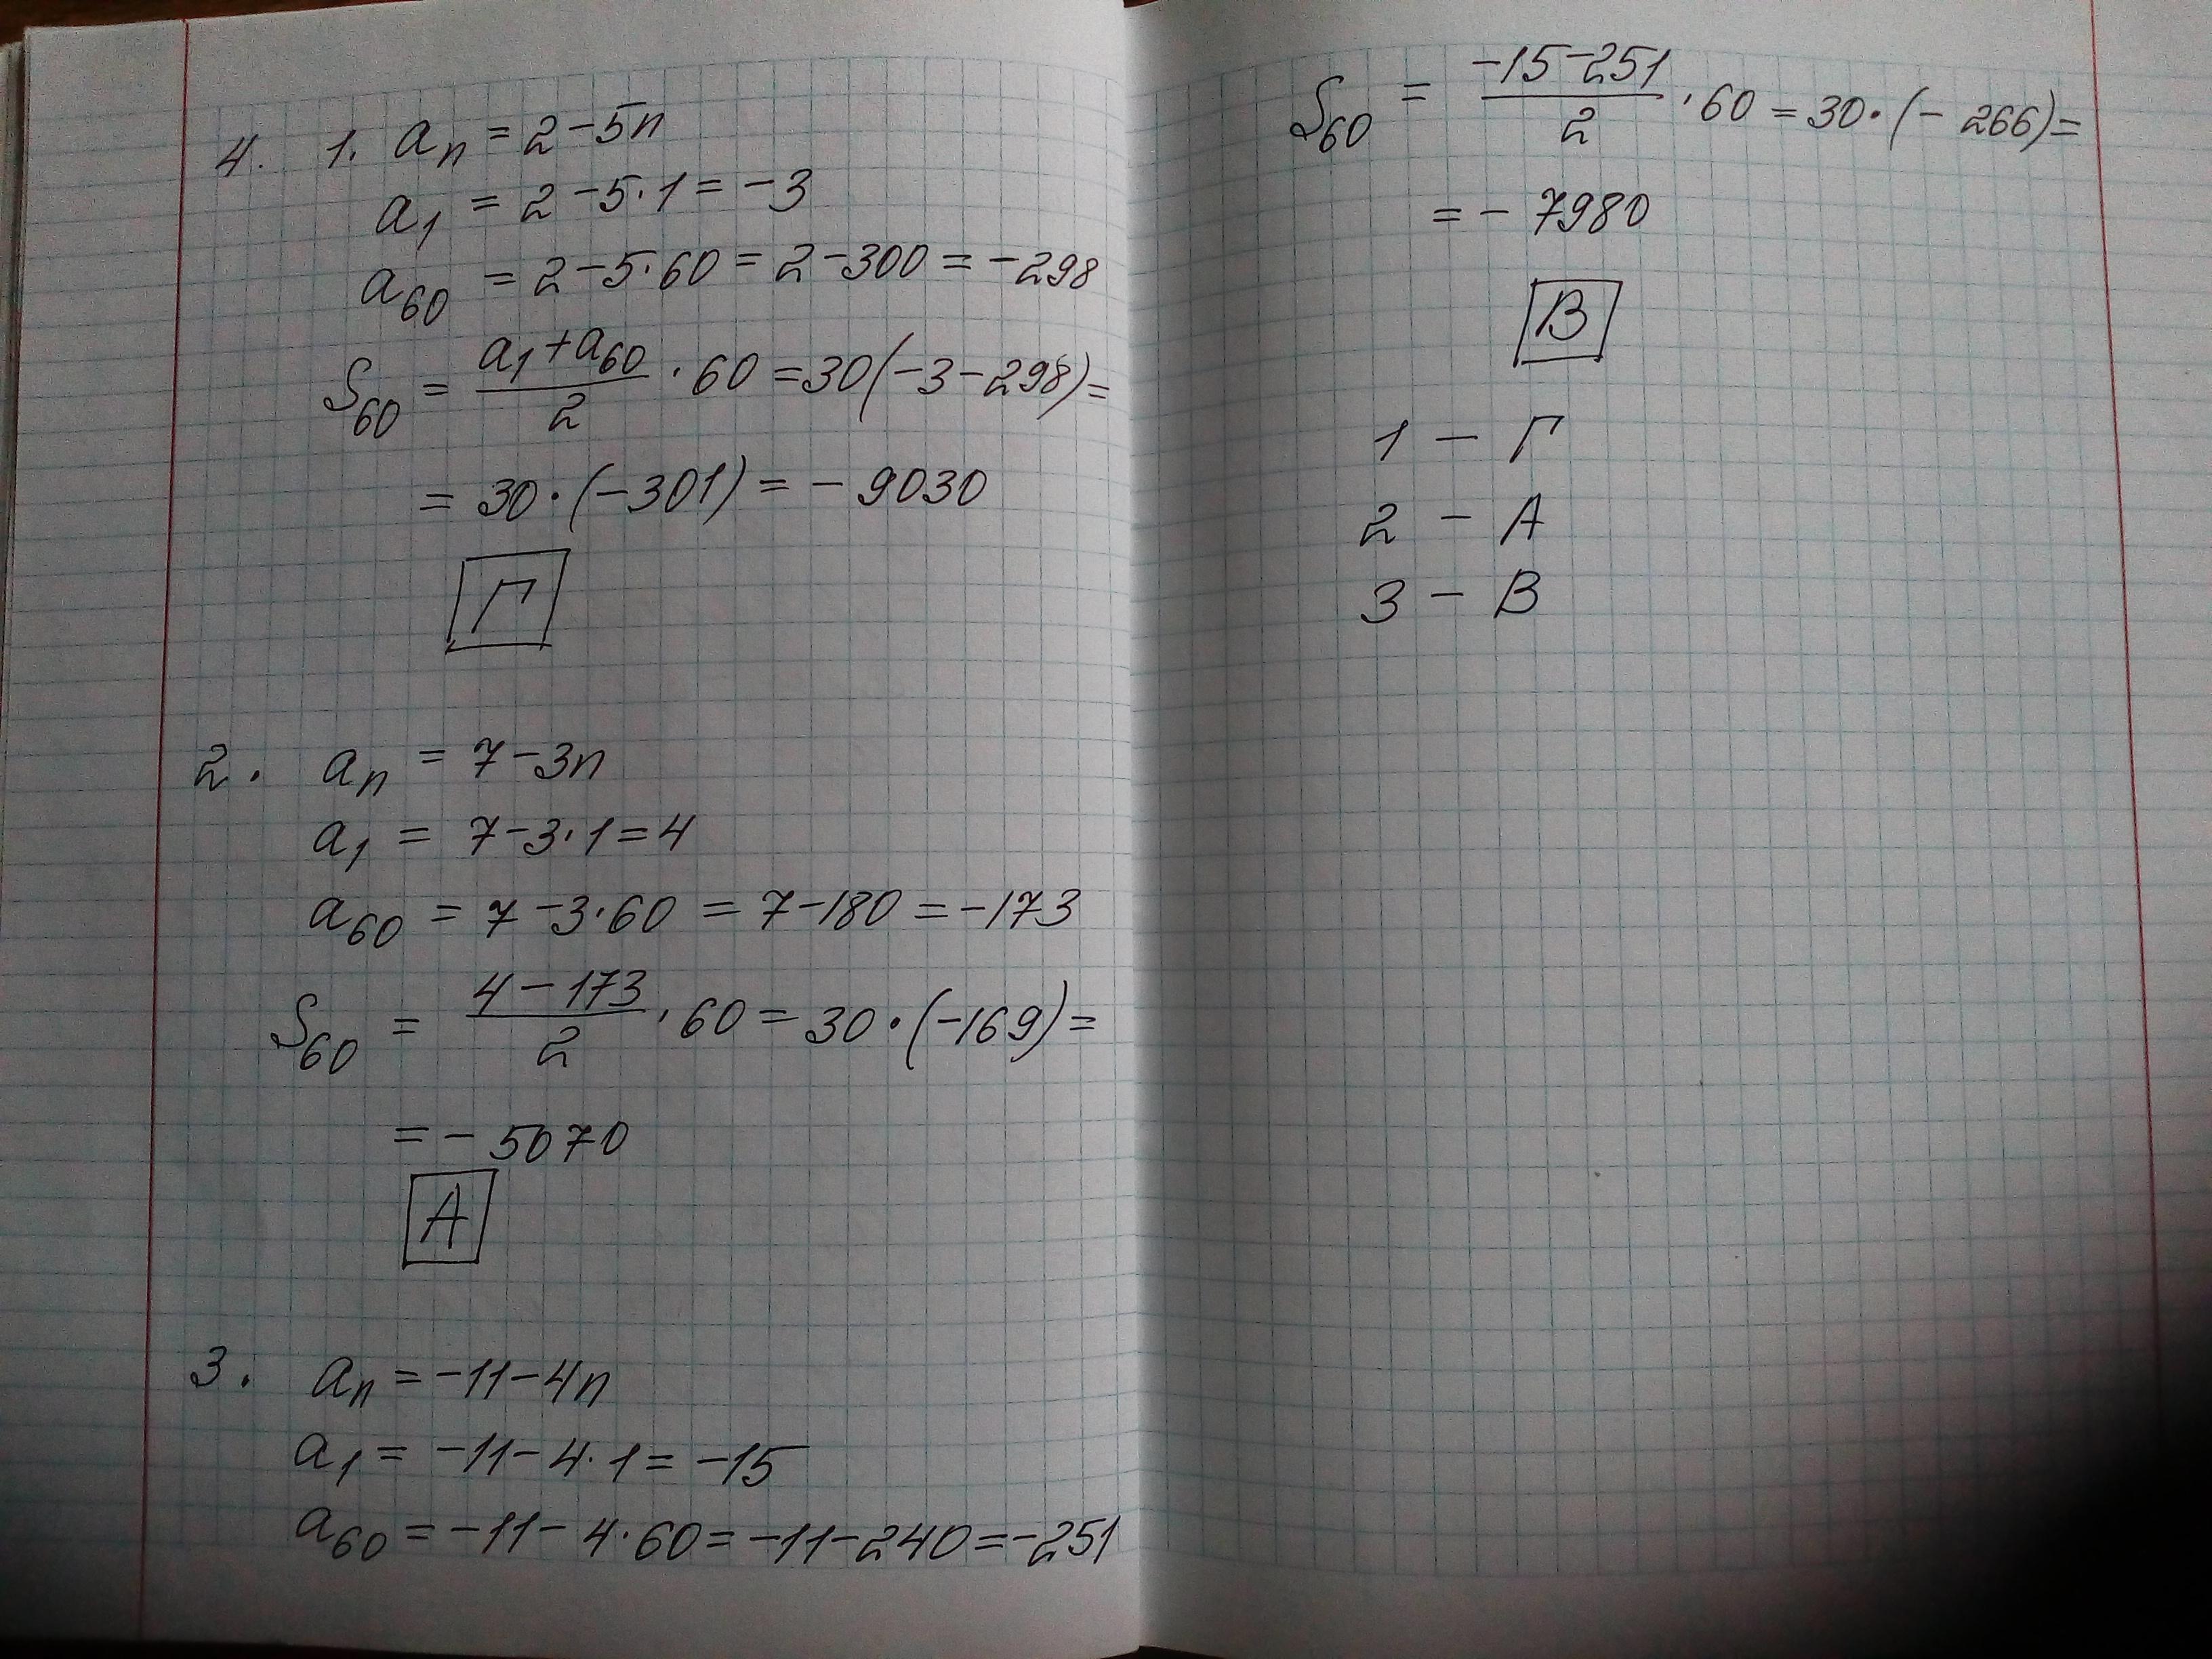 4. 1. aₙ = 2 - 5n
a₁ = 2 - 5·1 = -3
a₆₀ = 2 - 5·60 = 2 - 300 = -298
S₆₀ = (a₁ + a₆₀)/2 · 60 = 30(-3 - 298) =
= 30·(-301) = - 9030
Г
2. aₙ = 7 - 3n
a₁ = 7 - 3·1 = 4
a₆₀ = 7 - 3·60 = 7 - 180 = -173
S₆₀ = (4 - 173)/2 · 60 = 30·(-169) =
= - 5070
А
3. aₙ = -11 - 4n
a₁ = -11 - 4·1 = -15
a₆₀ = -11 - 4·60 = -11 - 240 = -251
S₆₀ = (-15 - 251)/2 · 60 = 30·(- 266) =
= - 7980
В
1 - Г
2 - А
3 - В